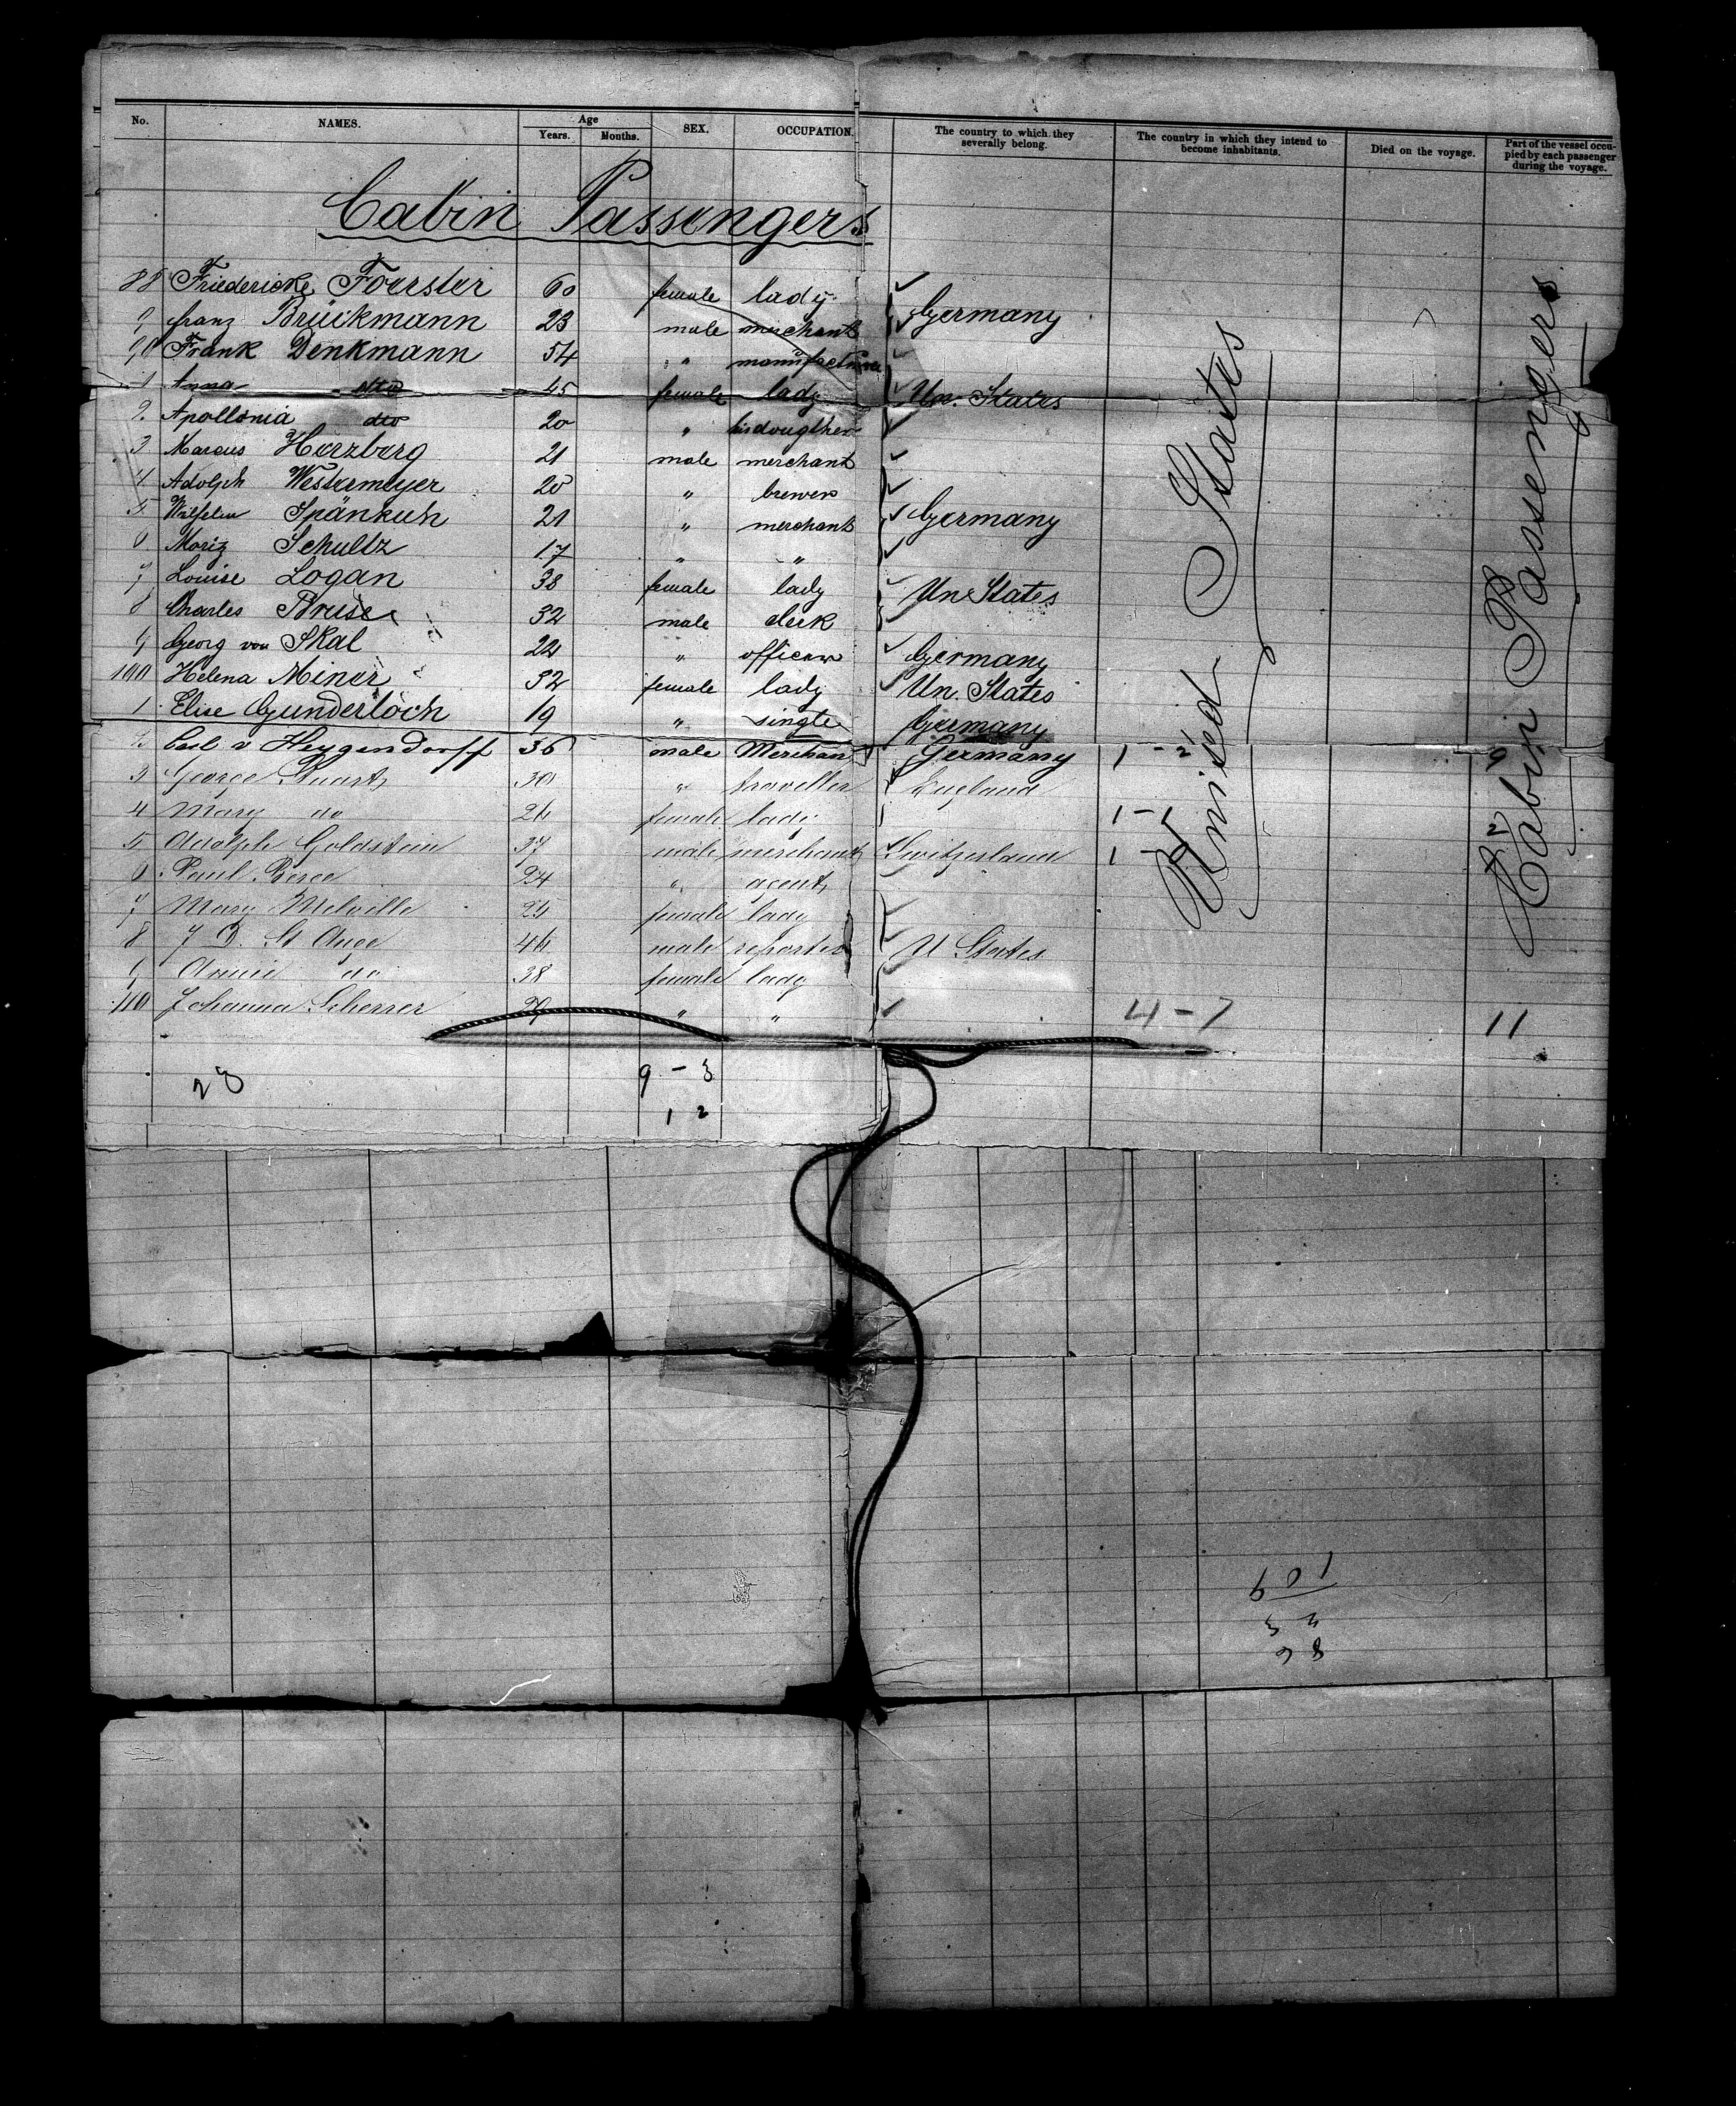 No. NAMES. Age Years. Months. SEX. OCCUPATION. The country to which they severally belong. The country in which they intend to become inhabitants. Died on the voyage. Part of the vessel occupied by each passenger during the voyage.
Cabin Passengers
88 Friedericke Foerster 60 female lady
9 Franz Brückmann 23 male merchant Germany
90 Frank Denkmann 54 " manufacturer
1 Anna dto 45 female lady Un. States
2. Apollonia dto 20 " his doughter
3 Marcus Herzberg 21 male merchant
4 Adolph Westermeyer 20 " brewer
5 Wilhelm Spänkuch 21 " merchant Germany
6 Moriz Schultz 17 " "
7 Louise Logan 38 female lady Un States
8 Charles Bruse 32 male clerk
9 Georg von Skal 22 " officer Germany
100 Helena Miner 32 female lady Un. States
1 Elise Gunderloch 19 " single Germany
2. Carl v Heygendorff 36 male Merchant Germany 1 - 2 9
3 George Stuart 30 " traveller England
4 Mary do 26 female lady 1 - 1 2
5 Adolph Goldstein 37 male merchant Switzerland 1
6 Paul Pierce 24 " agent
7 Mary Melville 25 female lady
8 St Ange 46 male reporter U States
9 Annie do 38 female lady
110 Johanna Scherrer 29 " " 4 - 7 11
United States
Cabin Passengers
23 9 - 3
1 2
86
23
109